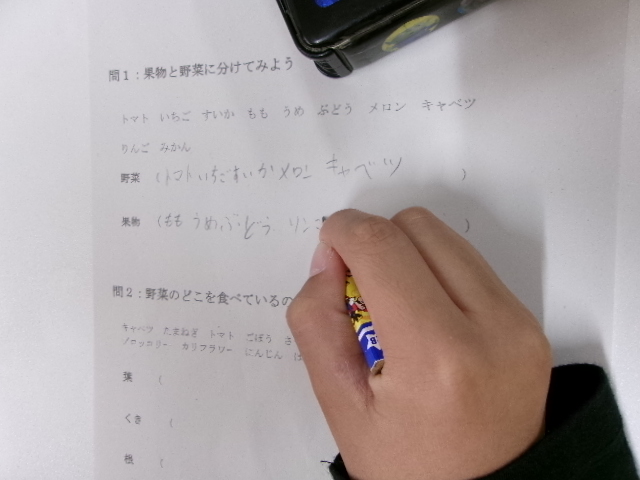 問1：果物と野菜に分けてみよう
トマト いちご すいか もも うめ ぶどう メロン キャベツ
りんご みかん
野菜 (トマトいちごすいかメロン キャベツ )
果物 (もも うめ,ぶどう リンゴ )
問2：野菜のどこを食べているの
キャベツ たまねぎ トマト ごぼう さ
ブロッコリー カリフラワー にんじん は
葉 (
くき (
根 (
B